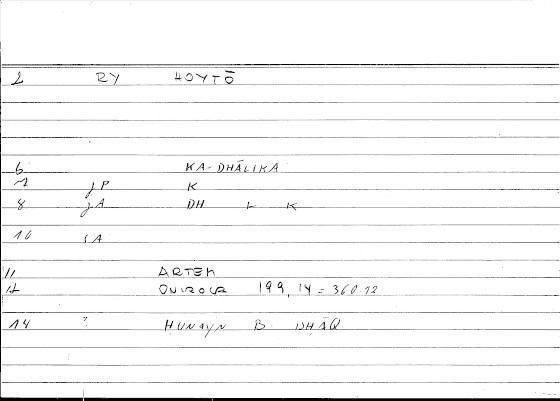 2 RY HOYTŌ
6 KA-DHĀLIKA
7 jP K
8 jA DH L K
10 SA
11 ARTEM
12 ONIROCR 199, 14 = 360.12
14 ? HUNAYN B ISHĀQ